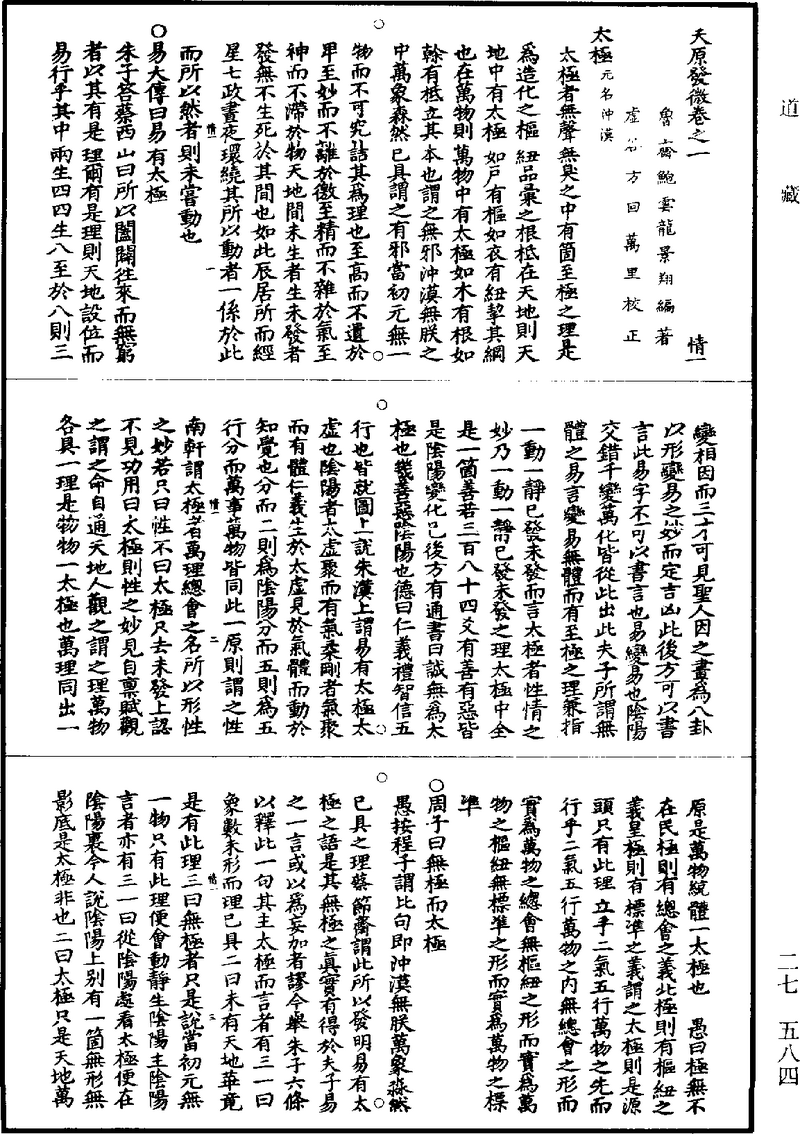 道藏
天原發微卷之一　情一
魯齋鮑雲龍景翔編著
虛谷方回萬里校正
太極元名沖漠
太極者無聲無臭之中有箇至極之理是
爲造化之樞紐品彙之根柢在天地則天
地中有太極如戶有樞如衣有紐挈其綱
也在萬物則萬物中有太極如木有根如
榦有柢立其本也謂之無邪沖漠無朕之
中萬象森然已具謂之有邪當初元無一
物而不可究詰其爲理也至高而不遺於
卑至妙而不離於徼至精而不雜於氣至
神而不滯於物天地間未生者生未發者
發無不生死於其間也如此辰居所而經
星七政晝夜環繞其所以動者一係於此
而所以然者則未嘗動也
○易大傳曰易有太極
朱子答蔡西山曰所以闔闢往來而無窮
者以其有是理爾有是理則天地設位而
易行乎其中兩生四四生八至於八則三
變相因而三才可見聖人因之畫爲八卦
以形變易之妙而定吉凶此後方可以書
言此易字不可以書言也易變易也陰陽
交錯千變萬化皆從此出此夫子所謂無
體之易言變易無體而有至極之理兼指
一動一靜已發未發而言太極者性情之
妙乃一動一靜已發未發之理太極中全
是一箇善若三百八十四爻有善有惡皆
是陰陽變化已後方有通書曰誠無爲太
極也幾善惡陰陽也德曰仁義禮智信五
行也皆就圖上說朱漢上謂易有太極太
虛也陰陽者太虛聚而有氣柔剛者氣聚
而有體仁義生於太虛見於氣體而動於
知覺也分而二則爲陰陽分而五則爲五
行分而萬事萬物皆同此一原則謂之性
南軒謂太極者萬理總會之名所以形性
之妙若只曰性不曰太極只去未發上認
不見功用曰太極則性之妙見自稟賦觀
之謂之命自通天地人觀之謂之理萬物
各具一理是物物一太極也萬理同出一
原是萬物統體一太極也　愚曰極無不
在民極則有總會之義此極則有樞紐之
義皇極則有標準之義謂之太極則是源
頭只有此理立乎二氣五行萬物之先而
行乎二氣五行萬物之內無總會之形而
實爲萬物之總會無樞紐之形而實爲萬
物之樞紐無標準之形而實爲萬物之標
準
○周子曰無極而太極
愚按程子謂此句即沖漠無朕萬象森然
已具之理蔡節齋謂此所以發明易有太
極之語是其無極之眞實有得於夫子易
之一言或以爲妄加者謬今舉朱子六條
以釋此一句其主太極而言者有三一曰
象數未形而理已具二曰未有天地畢竟
是有此理三曰無極者只是說當初元無
一物只有此理便會動靜生陰陽主陰陽
言者亦有三一曰從陰陽處看太極便在
陰陽裏今人說陰陽上別有一箇無形無
影底是太極非也二曰太極只是天地萬
情一　一
情一　二
情一　三
二七　五八四